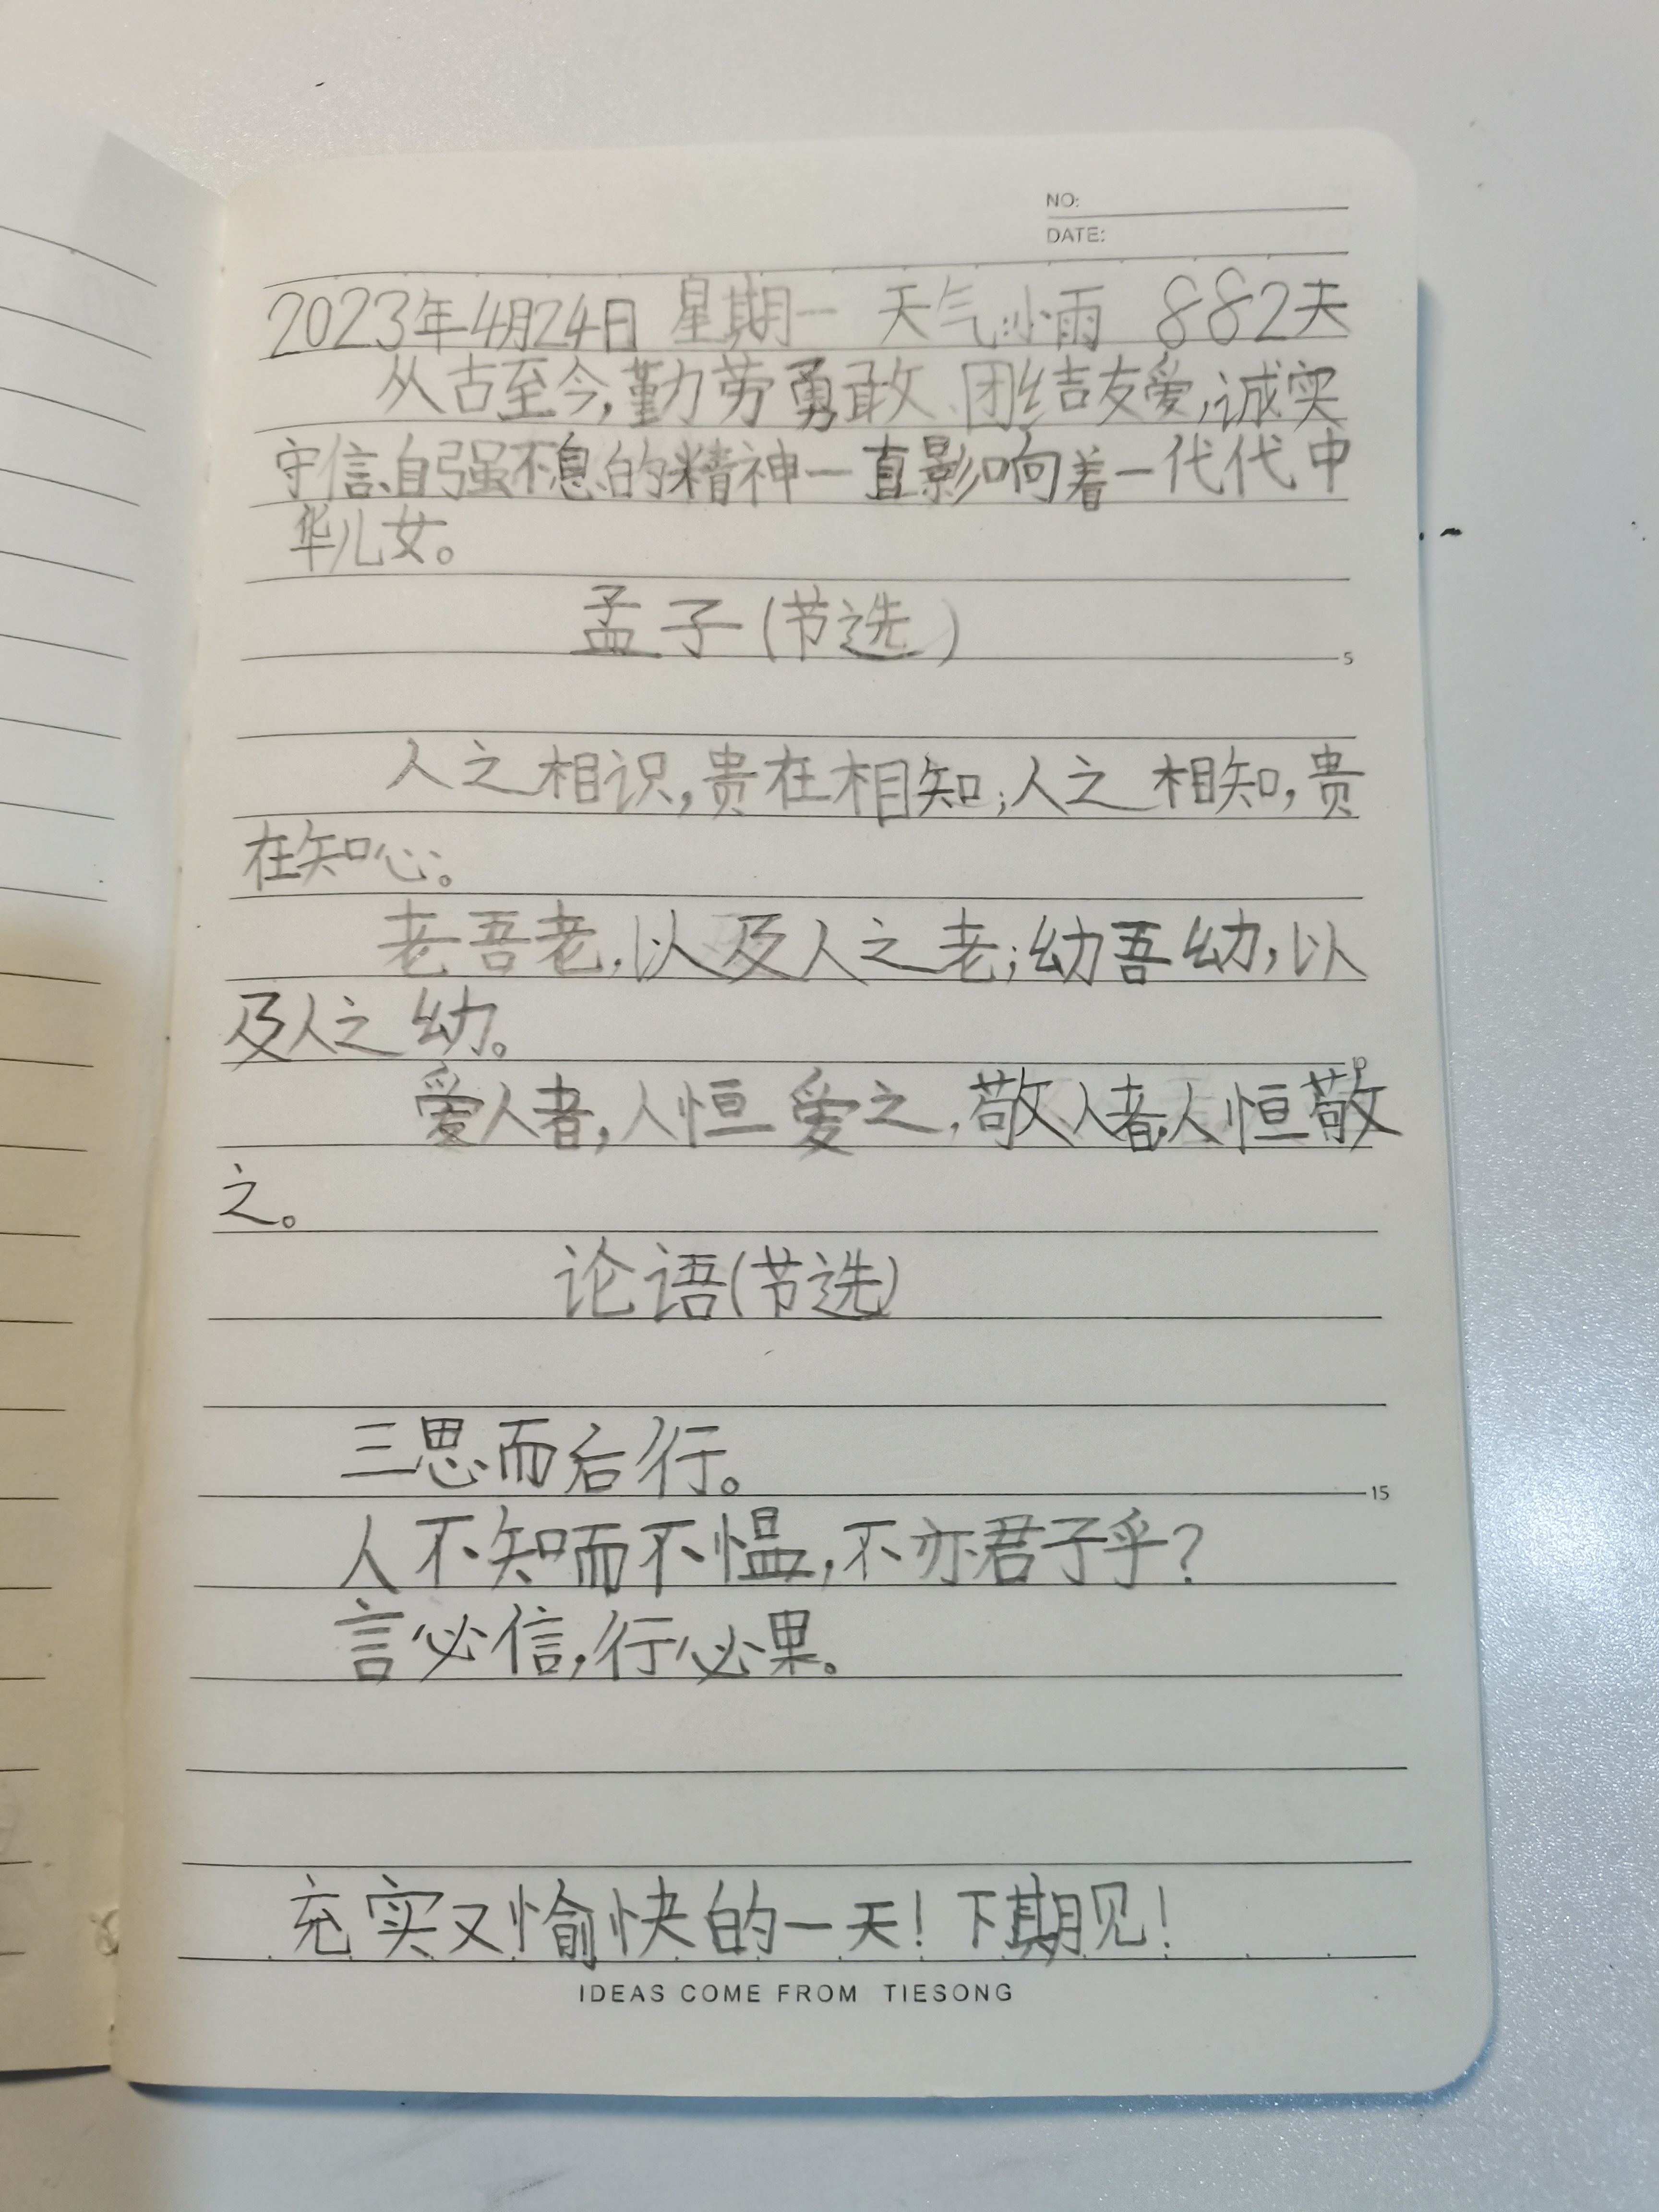 NO:
DATE:
2023年4月24日 星期一 天气:小雨 882天
从古至今,勤劳勇敢、团结友爱,诚实
守信、自强不息的精神一直影响着一代代中
华儿女。
孟子(节选)
5
人之相识,贵在相知;人之相知,贵
在知心。
老吾老,以及人之老;幼吾幼,以
及人之幼。
10
爱人者,人恒爱之,敬人者,人恒敬
之。
论语(节选)
三思而后行。
15
人不知而不愠,不亦君子乎?
言必信,行必果。
充实又愉快的一天!下期见!
IDEAS COME FROM TIESONG